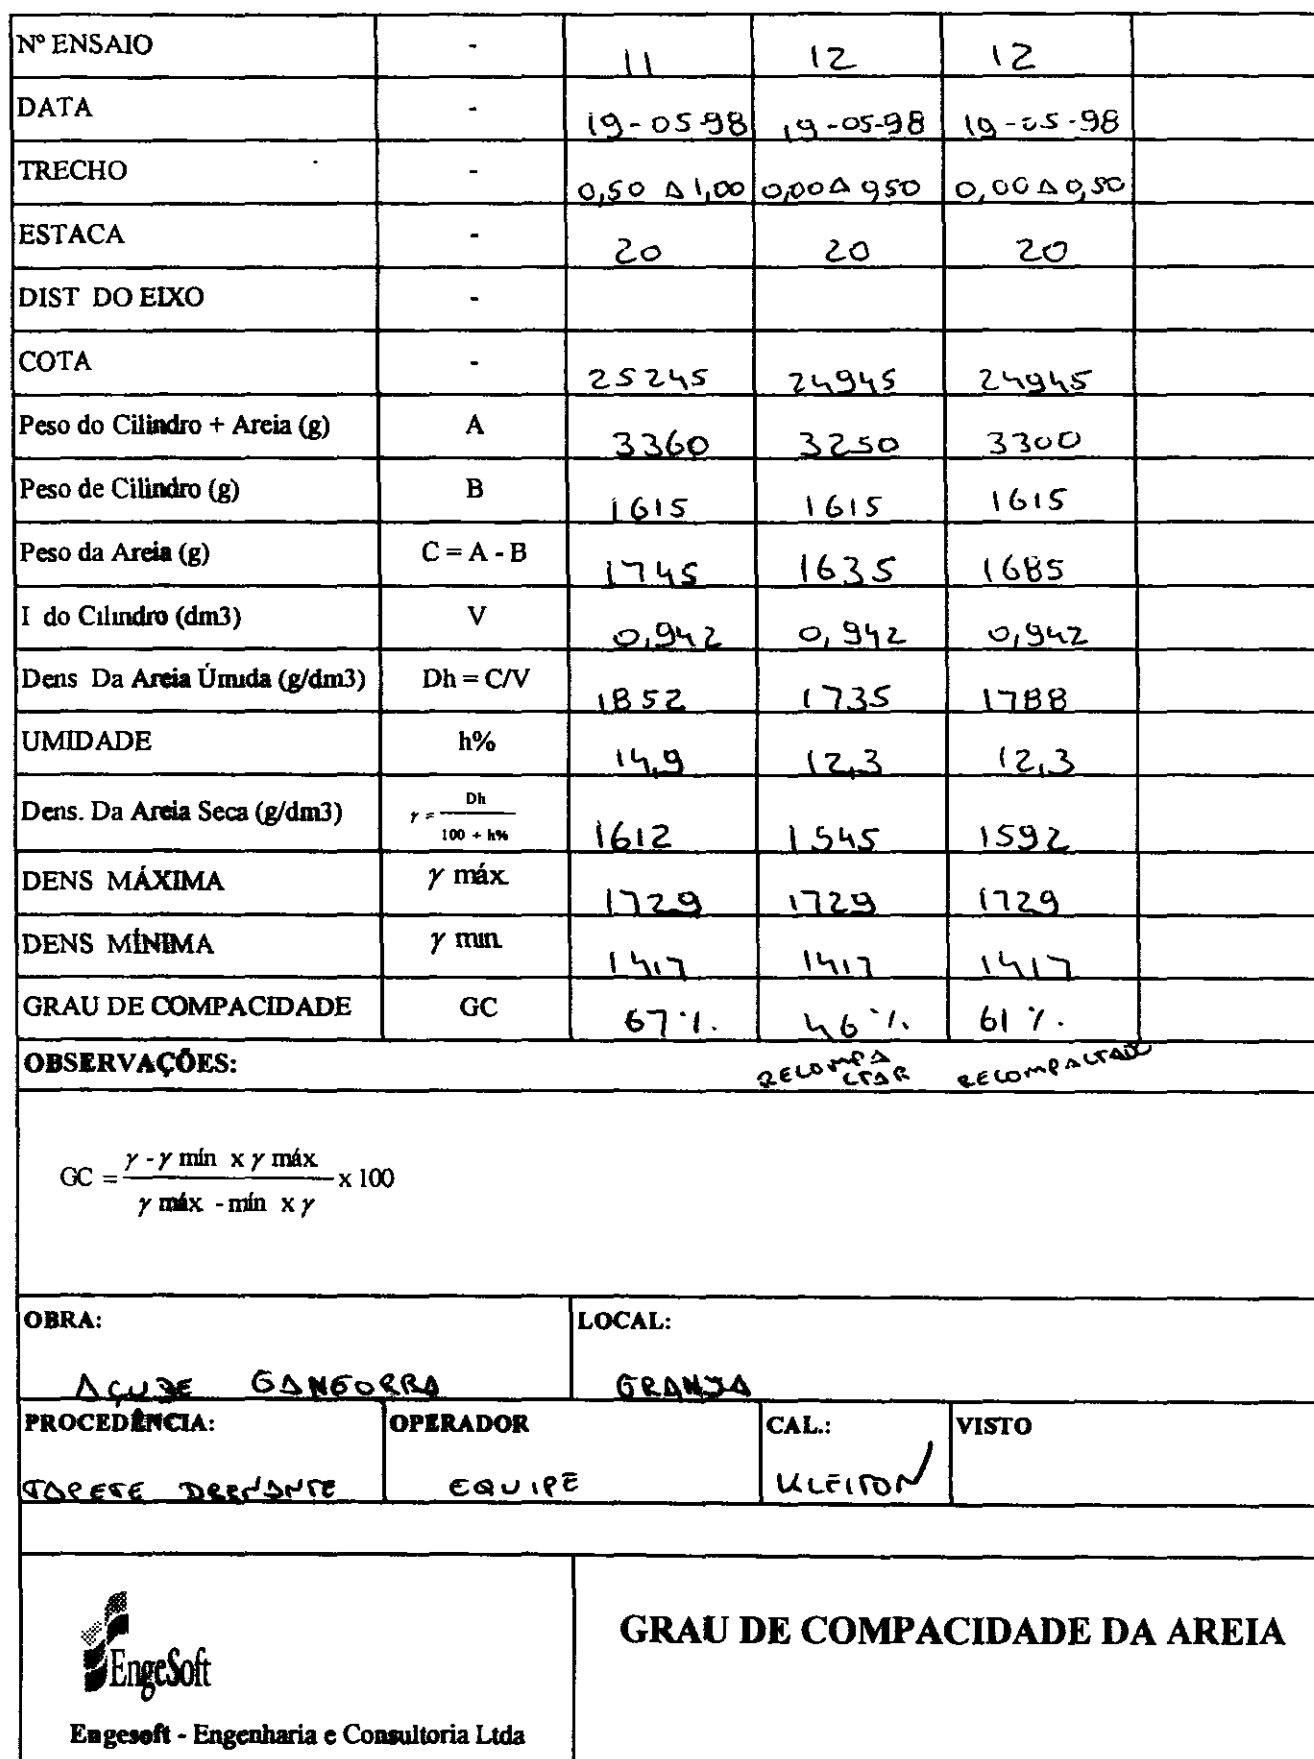 Nº ENSAIO - 11 12 12
DATA - 19-05-98 19-05-98 19-05-98
TRECHO - 0,50 A 1,00 0,00 A 0,50 0,00 A 0,50
ESTACA - 20 20 20
DIST DO EIXO -
COTA - 25245 24945 24945
Peso do Cilindro + Areia (g) A 3360 3250 3300
Peso de Cilindro (g) B 1615 1615 1615
Peso da Areia (g) C = A - B 1745 1635 1685
I do Cilindro (dm3) V 0,942 0,942 0,942
Dens Da Areia Úmida (g/dm3) Dh = C/V 1852 1735 1788
UMIDADE h% 14,9 12,3 12,3
Dens. Da Areia Seca (g/dm3) γ = Dh / 100 + h% 1612 1545 1592
DENS MÁXIMA γ máx. 1729 1729 1729
DENS MÍNIMA γ mın. 1417 1417 1417
GRAU DE COMPACIDADE GC 67 % 46 % 61 %
OBSERVAÇÕES: RECOMPACTAR RECOMPACTADO
GC = γ - γ mín x γ máx. / γ máx - mín x γ x 100
OBRA: LOCAL:
AÇUDE GANGORRA GRANJA
PROCEDÊNCIA: OPERADOR CAL.: VISTO
TAPETE DRENANTE EQUIPE KLEITON
EngeSoft
GRAU DE COMPACIDADE DA AREIA
Engesoft - Engenharia e Consultoria Ltda